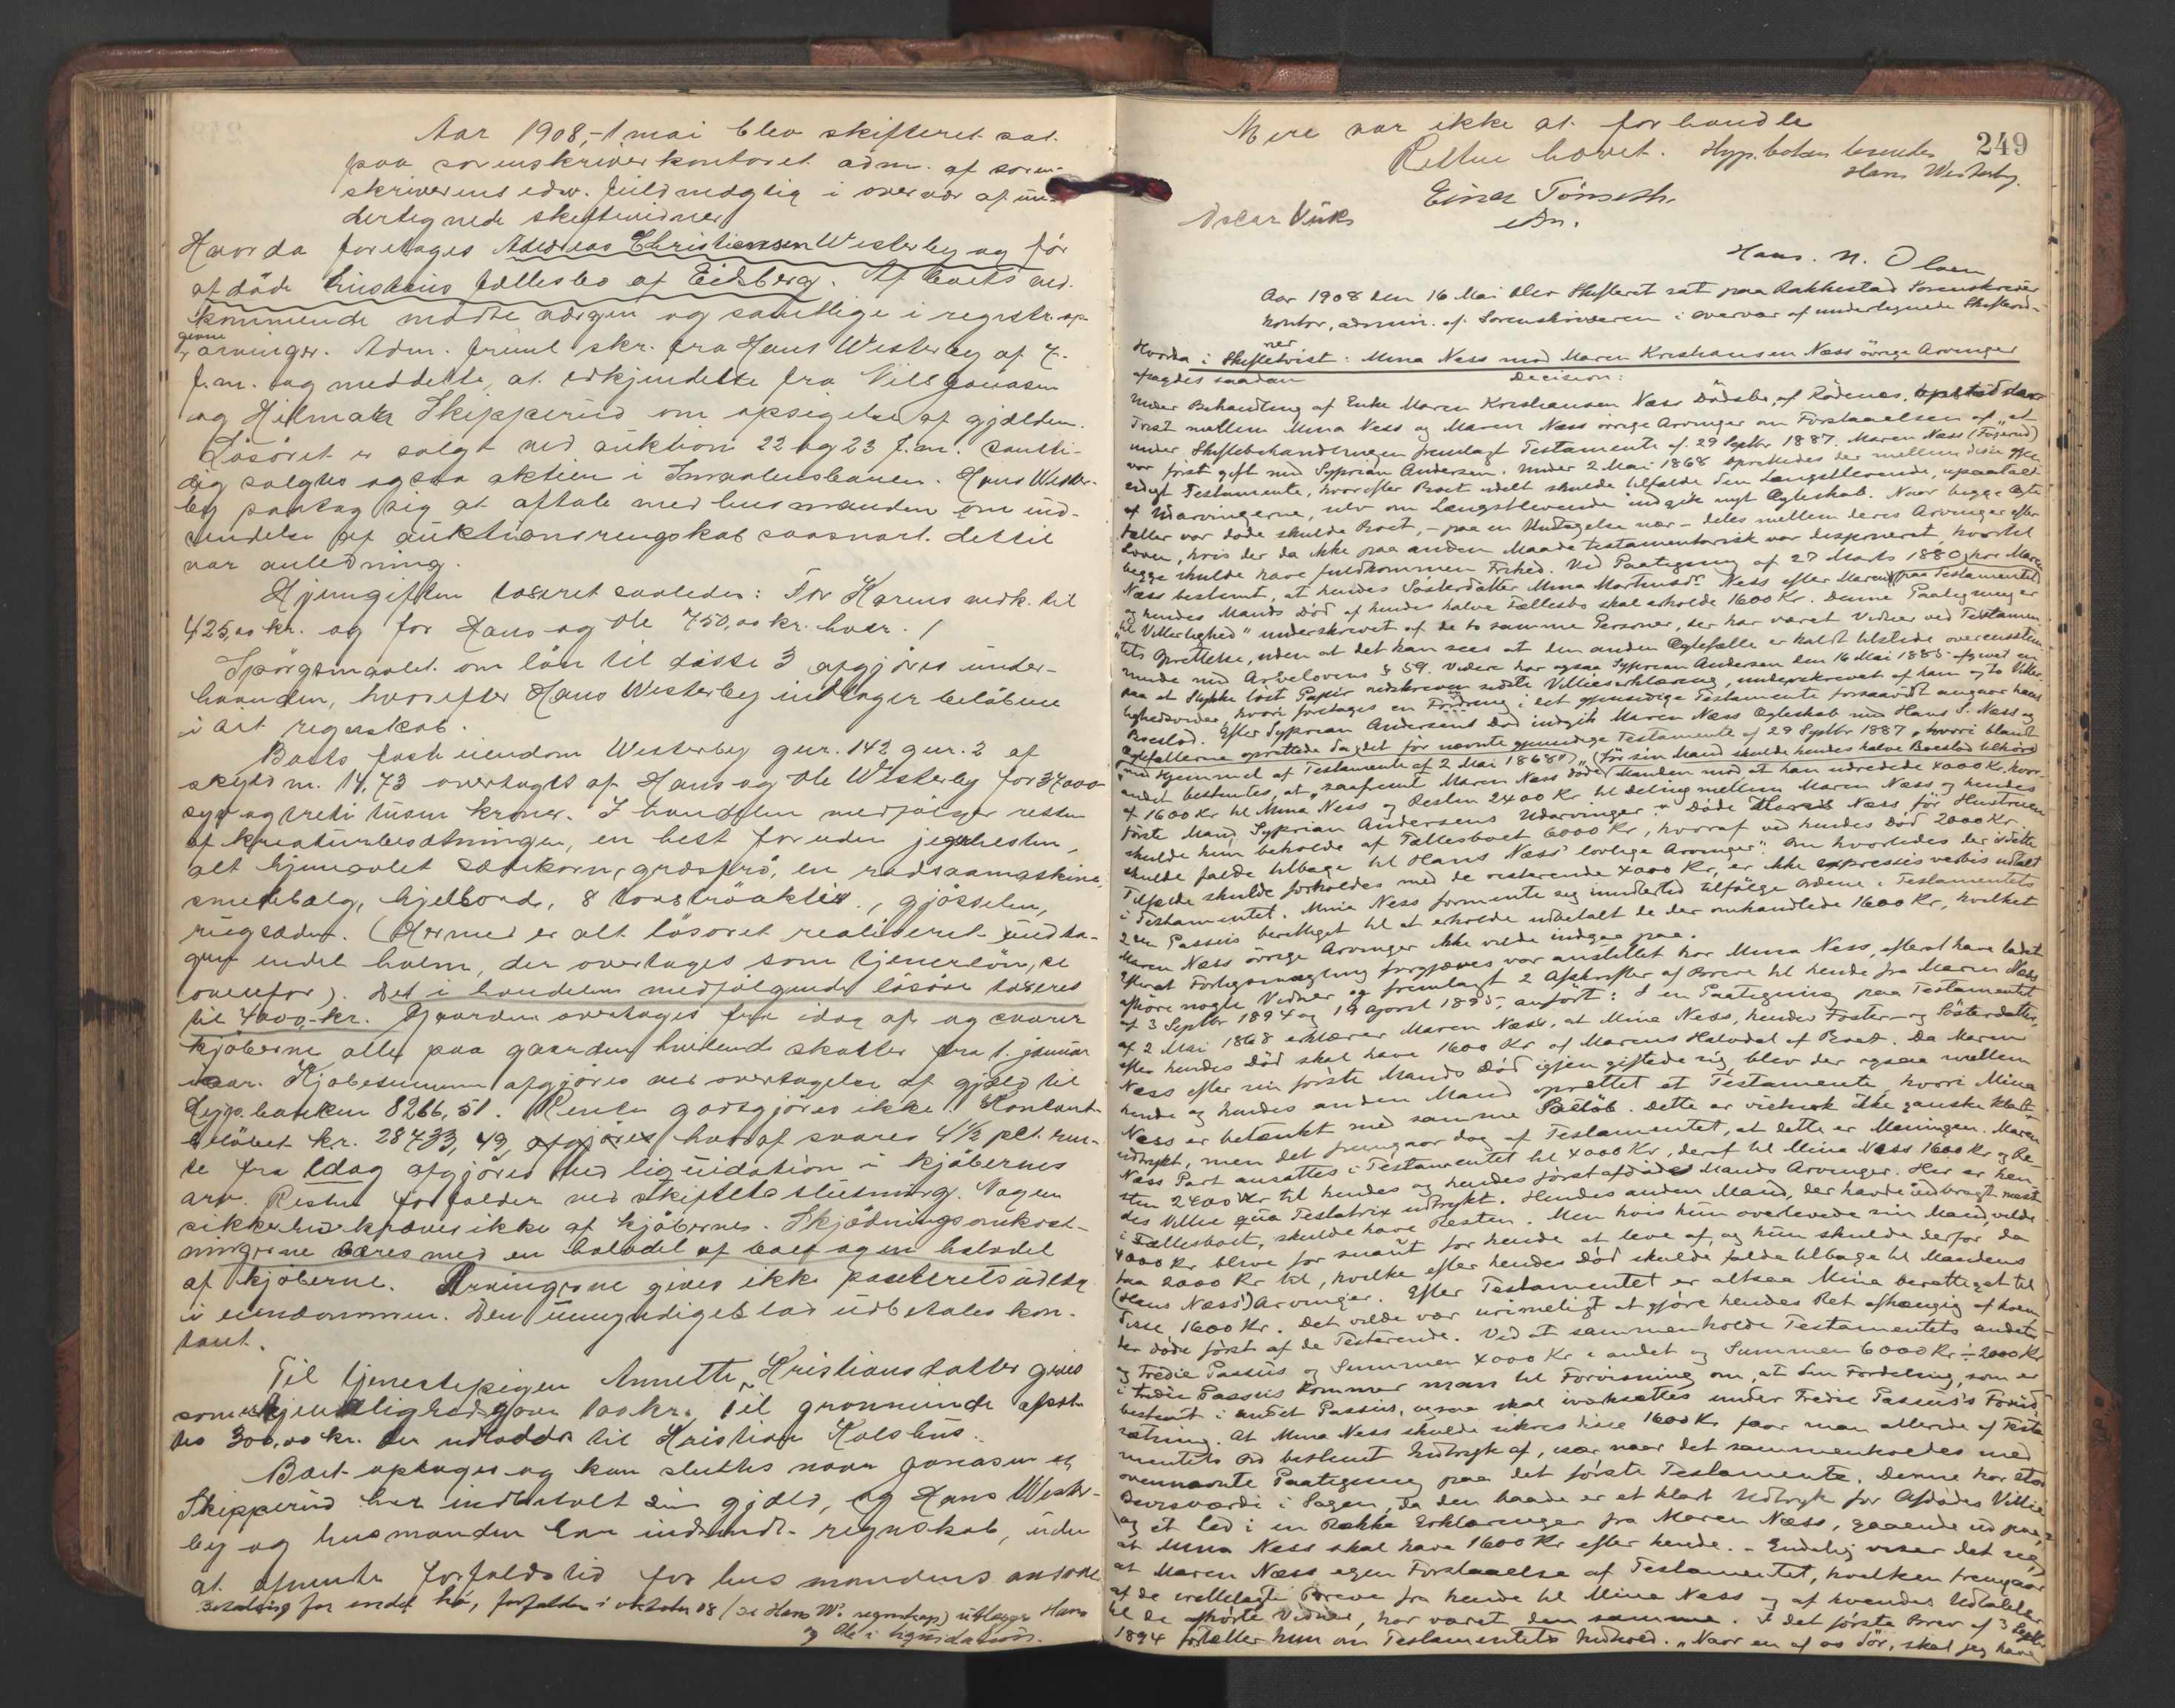 Aar 1908, 1 mai blev skifteret sat
paa sorenskriverkontoret adm. af soren-
skriverens edsv. fuldmægtig i overvær af un-
dertegnede skiftevidner
Hvorda foretages Andreas Christiansen Westerby og før
afdöde hustrus fællesbo af Eidsberg. Af boets ved-
kommende mødte værgen og samtlige i registr. op-
givne
arvinger. Adm. freml skr. fra Hans Westerby af 7.
f.m. og meddelte, at erkjendelse fra Nils Jonasen
og Hilmar Skipperud om opsigelse af gjælden.
Lösöret er solgt ved auktion 22 og 23 f.m. samti-
dig solgtes ogsaa aktien i Smaalensbanen. Hans Wester-
by paatog sig at aftale med husmanden om ind-
sendelse af auktionsregnskab saasnart dertil
var anledning.
Hjemgiften taseret saaledes: For Karens vedk. til
425,00 kr. og for Hans og Ole 750,00 kr. hver.
Spörgsmaalet om lön til disse 3 afgjöres under-
haanden, hvorefter Hans Westerby indtager belöbene
i sit regnskab.
Boets faste eiendom Westerby gnr. 142 bnr. 2 af
skyld m. 14,73 overtages af Hans og Ole Westerby for 37000
syv og treti tusen kroner. I handelen medfølger resten
af kreaturbesætningen, en hest foruden jeger hesten,
alt hjemavlet sædekorn, græsfrö, en radsaamaskine,
smedebælg, hjelbord, 8 torvströaktier, gjödselen,
rugsæden. (Hermed er alt lösöret realiseret undta-
gen endel halm, der overtages som tjenerlön, se
ovenfor). Det i handelen medfölgende lösöre taseres
til 4000,- kr. Gaarden overtages fra idag af og svarer
kjöberne alle paa gaarden hvilende skatter fra 1. januar
iaar. Kjöbesummen afgjöres ved overtagelse af gjæld til
Hyp.banken 8266,51. Rente godtgjöres ikke. Kontant-
belöbet kr. 28733,49, hvoraf svares 4½ pct. ren-
te fra idag afgjöres ved liquidation i kjöbernes
arv. Resten forfalder ved skiftets slutning. Nogen
sikkerhed kræves ikke af kjöberne. Skjödningsomkost-
ningerne bæres med en halvdel af boet og en halvdel
af kjöberne. Arvingerne gives ikke panterets udlæg
i eiendommen. Den umyndiges lod udbetales kon-
tant.
Til tjenestepigen Annette Kristiansdatter gives
som erkjendtlighedsgave 100 kr. Til gravminde afsæt-
tes 300,00 kr. der udlodde til Kristian Kolsbus.
Boet optages og kan sluttes naar Jonasen og
Skipperud har indbetalt sin gjæld, og Hans Wester-
by og husmanden har indsendt regnskab, uden
at afvente forfaldstid for husmandens ansvar.
Betaling for endel hø, forfalden i oktober 08 (se Hans W. regnskap) utlægges Hans
og Ole i liquidation.
Mere var ikke at forhandle
Retten hævet. Hyp.boken besendes
Hans Westerby.
249
Einar Tönseth
edsv.
Oscar Viik
Hans. N. Olsen
Aar 1908 den 16 Mai blev Skifteret sat paa Rakkestad Sorenskriver
kontor, admin. af Sorenskriveren i overvær af undertegnede Skiftevid-
ner
Hvorda i Skiftetvist: Mina Ness mod Maren Kreshansen Næss övrige Arvinger
afsagdes saadan Decision:
Under Behandling af Enke Maren Kreshansen Næss Dödsbo, af Rödenes, opstod der
Tvist mellem Mina Ness og Maren Næss övrige Arvinger om Forstaaelsen af et
under Skiftebehandlingen fremlagt Testamente af 29 Septbr 1887. Maren Næss (Fögerud)
var först gift med Syprian Andersen. Under 2 Mai 1868 oprettedes der mellem disse gjen-
sidigt Testamente, hvorefter Boet udelt skulde tilfalde den Længstlevende, upaatalt
af Udarvingerne, selv om Længstlevende indgik nyt Ægteskab. Naar begge Ægte
fæller var døde skulde Boet, - paa en Undtagelse nær - deles mellem deres Arvinger efter
Loven, hvis der da ikke paa anden Maade testamentarisk var disponeret, hvortil
begge skulde have fuldkommen Frihed. Ved Paategning af 27 Marts 1880 har Maren
Næss bestemt, at hendes Sösterdatter Mina Martinusdr Ness efter Maren paa Testamentet
og hendes Mands Död af hendes halve Fællesbo skal erholde 1600 Kr. Denne Paategning er
"til Vitterlighed" underskrevet af de to samme Personer, der har været Vidner ved Testamen-
tets Oprettelse, uden at det kan sees at den anden Ægtefælle er kaldt tilstede overensstem-
mende med Arvelovens § 59. Videre har ogsaa Syprian Andersen den 16 Mai 1885 afgivet en
paa et Stykke löst Papir nedskreven sidste Villieserklæring, underskrevet af ham og to Vitter-
lighedsvidner, hvori foretages en Ændring i det gjensidige Testamente forsaavidt angaar hans
Boeslod. Efter Syprian Andersens Död indgik Maren Næss Ægteskab med Hans S. Næss og
Ægtefællerne oprettede da det för nævnte gjensidige Testamente af 29 Septbr 1887, hvori blandt
"med Hjemmel af Testamente af 2 Mai 1868" (för sin Mand skulde hendes halve Boeslod tilhöre
andet bestemtes, at "saafremt Maren Næss döde Manden mod at han udredede 4000 Kr, hvor-
af 1600 Kr til Mina Ness og Resten 2400 Kr til deling mellem Maren Næss og hendes
förste Mand, Syprian Andersens Udarvinger." Döde Hans Næss för Hustruen
skulde hun beholde af Fællesboet 6000 Kr, hvoraf ved hendes Död 2000 Kr
skulde falde tilbage til Hans Næss' lovlige Arvinger". Om hvorledes der i dette
Tilfælde skulde forholdes med de resterende 4000 Kr, er ikke expressis verbis udtalt
i Testamentet. Mina Ness formente sig imidlertid tilfölge Ordene i Testamentets
2den Passus berettiget til at erholde udbetalt de der omhandlede 1600 Kr, hvilket
Maren Næss övrige Arvinger ikke vilde indgaa paa.
Efterat Forligsmægling forgjæves var anstillet har Mina Ness, efterat have ladet
afhøre nogle Vidner og fremlagt 2 Afskrifter af Breve til hende fra Maren Næss
af 3 Septbr 1894 og 19 April 1895, anfört: I en Paategning paa Testamentet
af 2 Mai 1868 erklærer Maren Næss, at Mina Ness, hendes Foster- og Sösterdatter,
efter hendes Död skal have 1600 Kr af Marens Halvdel af Boet. Da Maren
Ness efter sin förste Mands Död igjen giftede sig, blev der ogsaa mellem
hende og hendes anden Mand oprettet et Testamente, hvori Mina
Ness er betænkt med samme Belöb. Dette er vistnok ikke ganske klart
udtrykt, men det fremgaar dog af Testamentet, at dette er Meningen. Maren
Næss Part ansattes i Testamentet til 4000 Kr, deraf til Mina Ness 1600 Kr og Re-
sten 2400 Kr til hendes og hendes först afdöde Mands Arvinger. Her er hen-
des Villie qua Testatrix udtrykt. Hendes anden Mand, der havde indbragt mest
i Fællesboet, skulde have Resten. Men hvis hun overlevede sin Mand, vilde
4000 Kr blive for snaut for hende at leve af, og hun skulde derfor da
faa 2000 Kr til, hvilke efter hendes Död skulde falde tilbage til Mandens
(Hans Næss') Arvinger. Efter Testamentet er altsaa Mina berettiget til
disse 1600 Kr. Det vilde være urimeligt at gjöre hendes Ret afhængig af hvem
der döde först af de Testerende. Ved at sammenholde Testamentets andet
og tredie Passus og Summen 4000 Kr i andet og Summen 6000 Kr ÷ 2000 Kr
i tredie Passus kommer man til Forvisning om, at den Fordeling, som er
bestemt i andet Passus, ogsaa skal iværksættes under tredie Passus's Forud-
sætning. At Mina Ness skulde sikres disse 1600 Kr faar man allerede af Testa
mentets Ord bestemt Indtryk af, især naar det sammenholdes med
ovennævnte Paategning paa det förste Testamente. Denne har stor
Bevisværdi i Sagen, da den baade er et klart Udtryk for Afdödes Villie
og et Led i en Række Erklæringer fra Maren Næss, gaaende ud paa,
at Mina Ness skal have 1600 Kr efter hende. - Endelig viser det sig,
at Maren Næss egen Forstaaelse af Testamentet, hvilken fremgaar
af de fremlagte Breve fra hende til Mina Ness og af hvendes Udtalelser
til de afhørte Vidner, har været den samme. I det förste Brev af 3 Septbr
1894 fortæller hun om Testamentets Indhold. "Naar en af os dör, skal jeg have